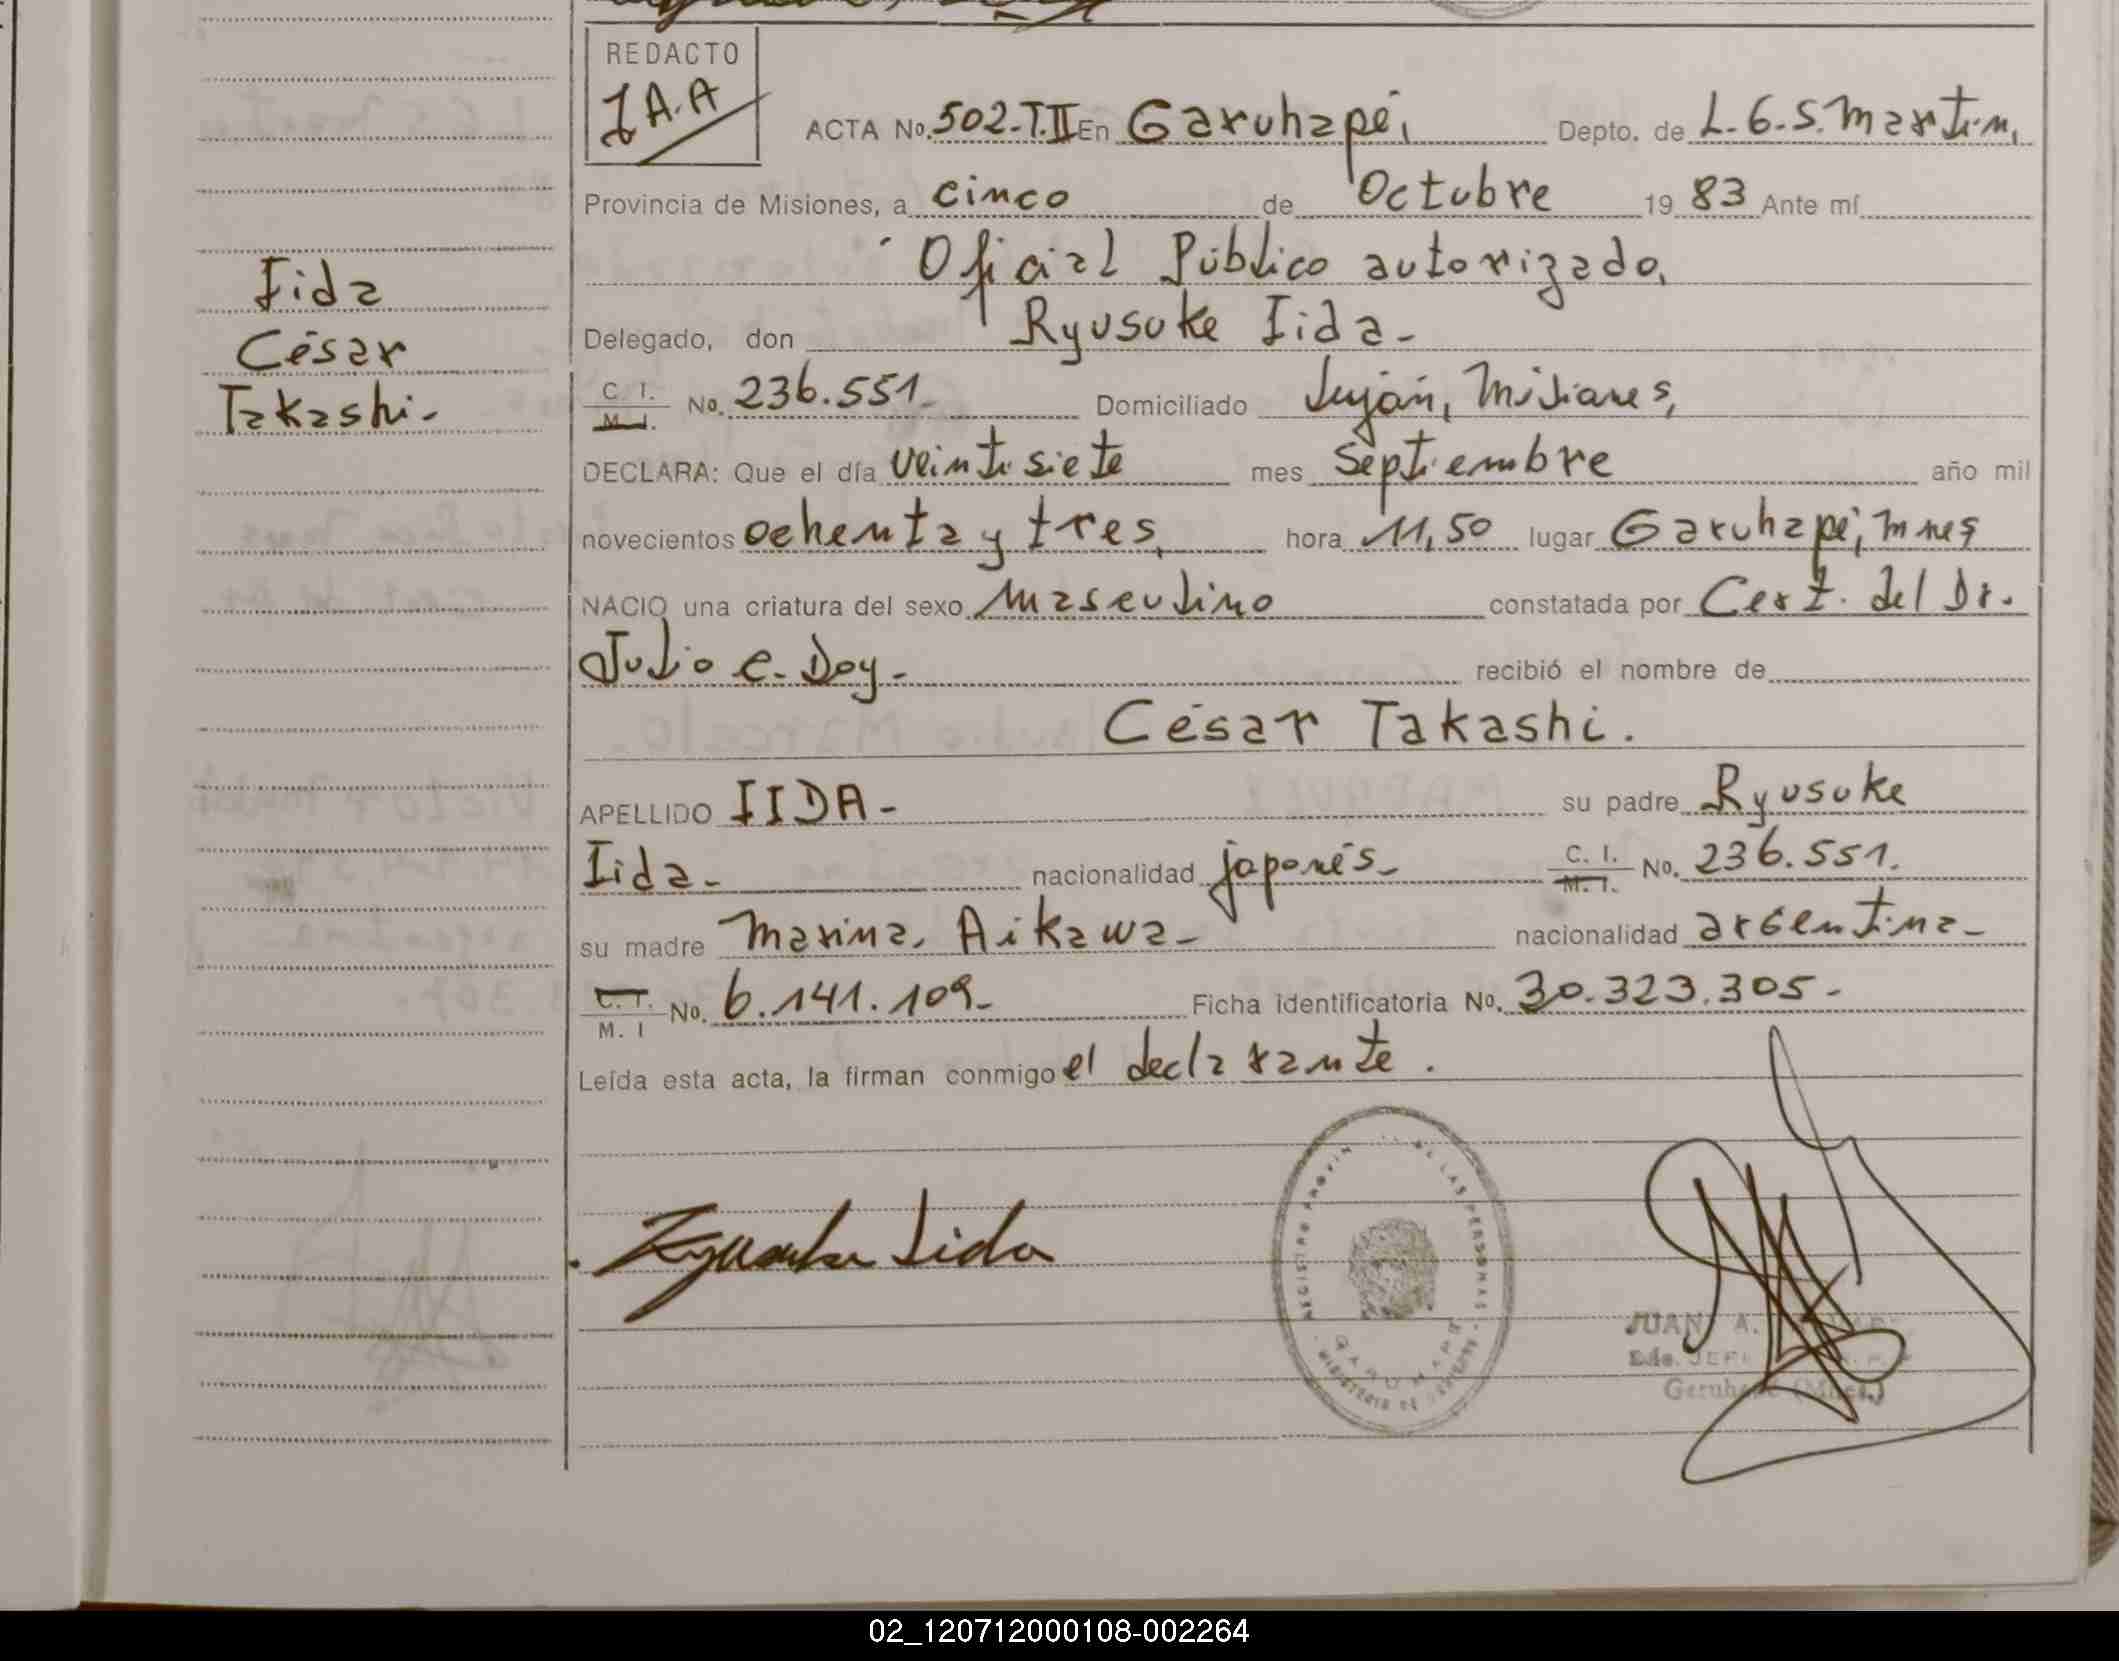 REDACTO
J A.A
ACTA No. 502-T.II En Garuhapé, Depto. de L.G.S.Martin,
Provincia de Misiones, a cinco de Octubre 19 83 Ante mí
Oficial Público autorizado,
Delegado, don Ryusuke Iida-
C. I. M. I. No. 236.551- Domiciliado Luján, Misiones,
DECLARA: Que el día veintisiete mes Septiembre año mil
novecientos ochenta y tres, hora 11,50 lugar Garuhapé, Mnes
NACIO una criatura del sexo masculino constatada por Cert. del Dr.
Julio C. Doy- recibió el nombre de
César Takashi.
APELLIDO IIDA- su padre Ryusuke
Iida- nacionalidad japonés- C. I. M. I. No. 236.551.
su madre Marina Aikawa- nacionalidad argentina-
C. I. M. I No. 6.141.109- Ficha identificatoria No. 30.323.305-
Leída esta acta, la firman conmigo el declarante.
Iida
César
Takashi-
Ryusuke Iida
REGISTRO PROVIN DE LAS PERSONAS
GARUHAPE
MINISTERIO DE
JUAN A.
Garuhapé (Mnes.)
02_120712000108-002264